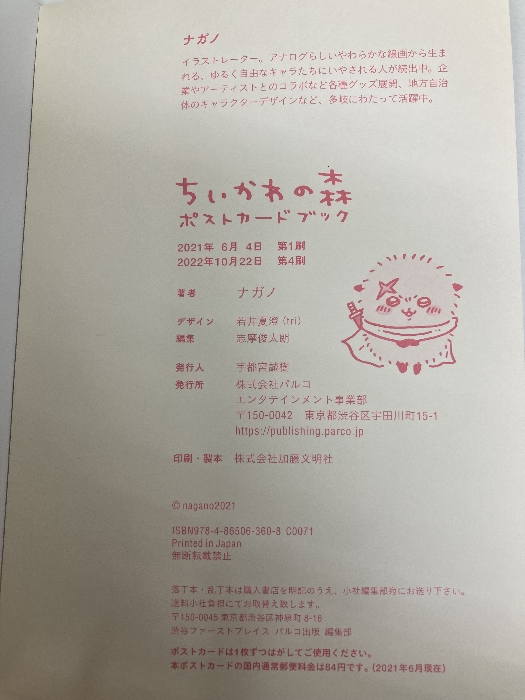 ナガノ
イラストレーター。アナログらしいやわらかな線画から生ま
れる、ゆるく自由なキャラたちにいやされる人が続出中。企
業やアーティストとのコラボなど各種グッズ展開、地方自治
体のキャラクターデザインなど、多岐にわたって活躍中。
ちいかわの森
ポストカードブック
2021年 6月 4日 第1刷
2022年10月22日 第4刷
著者 ナガノ
デザイン 岩井夏澄(tri)
編集 志摩俊太朗
発行人 宇都宮誠樹
発行所 株式会社パルコ
エンタテインメント事業部
〒150-0042 東京都渋谷区宇田川町15-1
https://publishing.parco.jp
印刷・製本 株式会社加藤文明社
©nagano2021
ISBN978-4-86506-360-8 C0071
Printed in Japan
無断転載禁止
落丁本・乱丁本は購入書店を明記のうえ、小社編集部宛にお送り下さい。
送料小社負担にてお取替え致します。
〒150-0045 東京都渋谷区神泉町8-16
渋谷ファーストプレイス パルコ出版 編集部
ポストカードは1枚ずつはがしてご使用ください。
本ポストカードの国内通常郵便料金は84円です。(2021年6月現在)